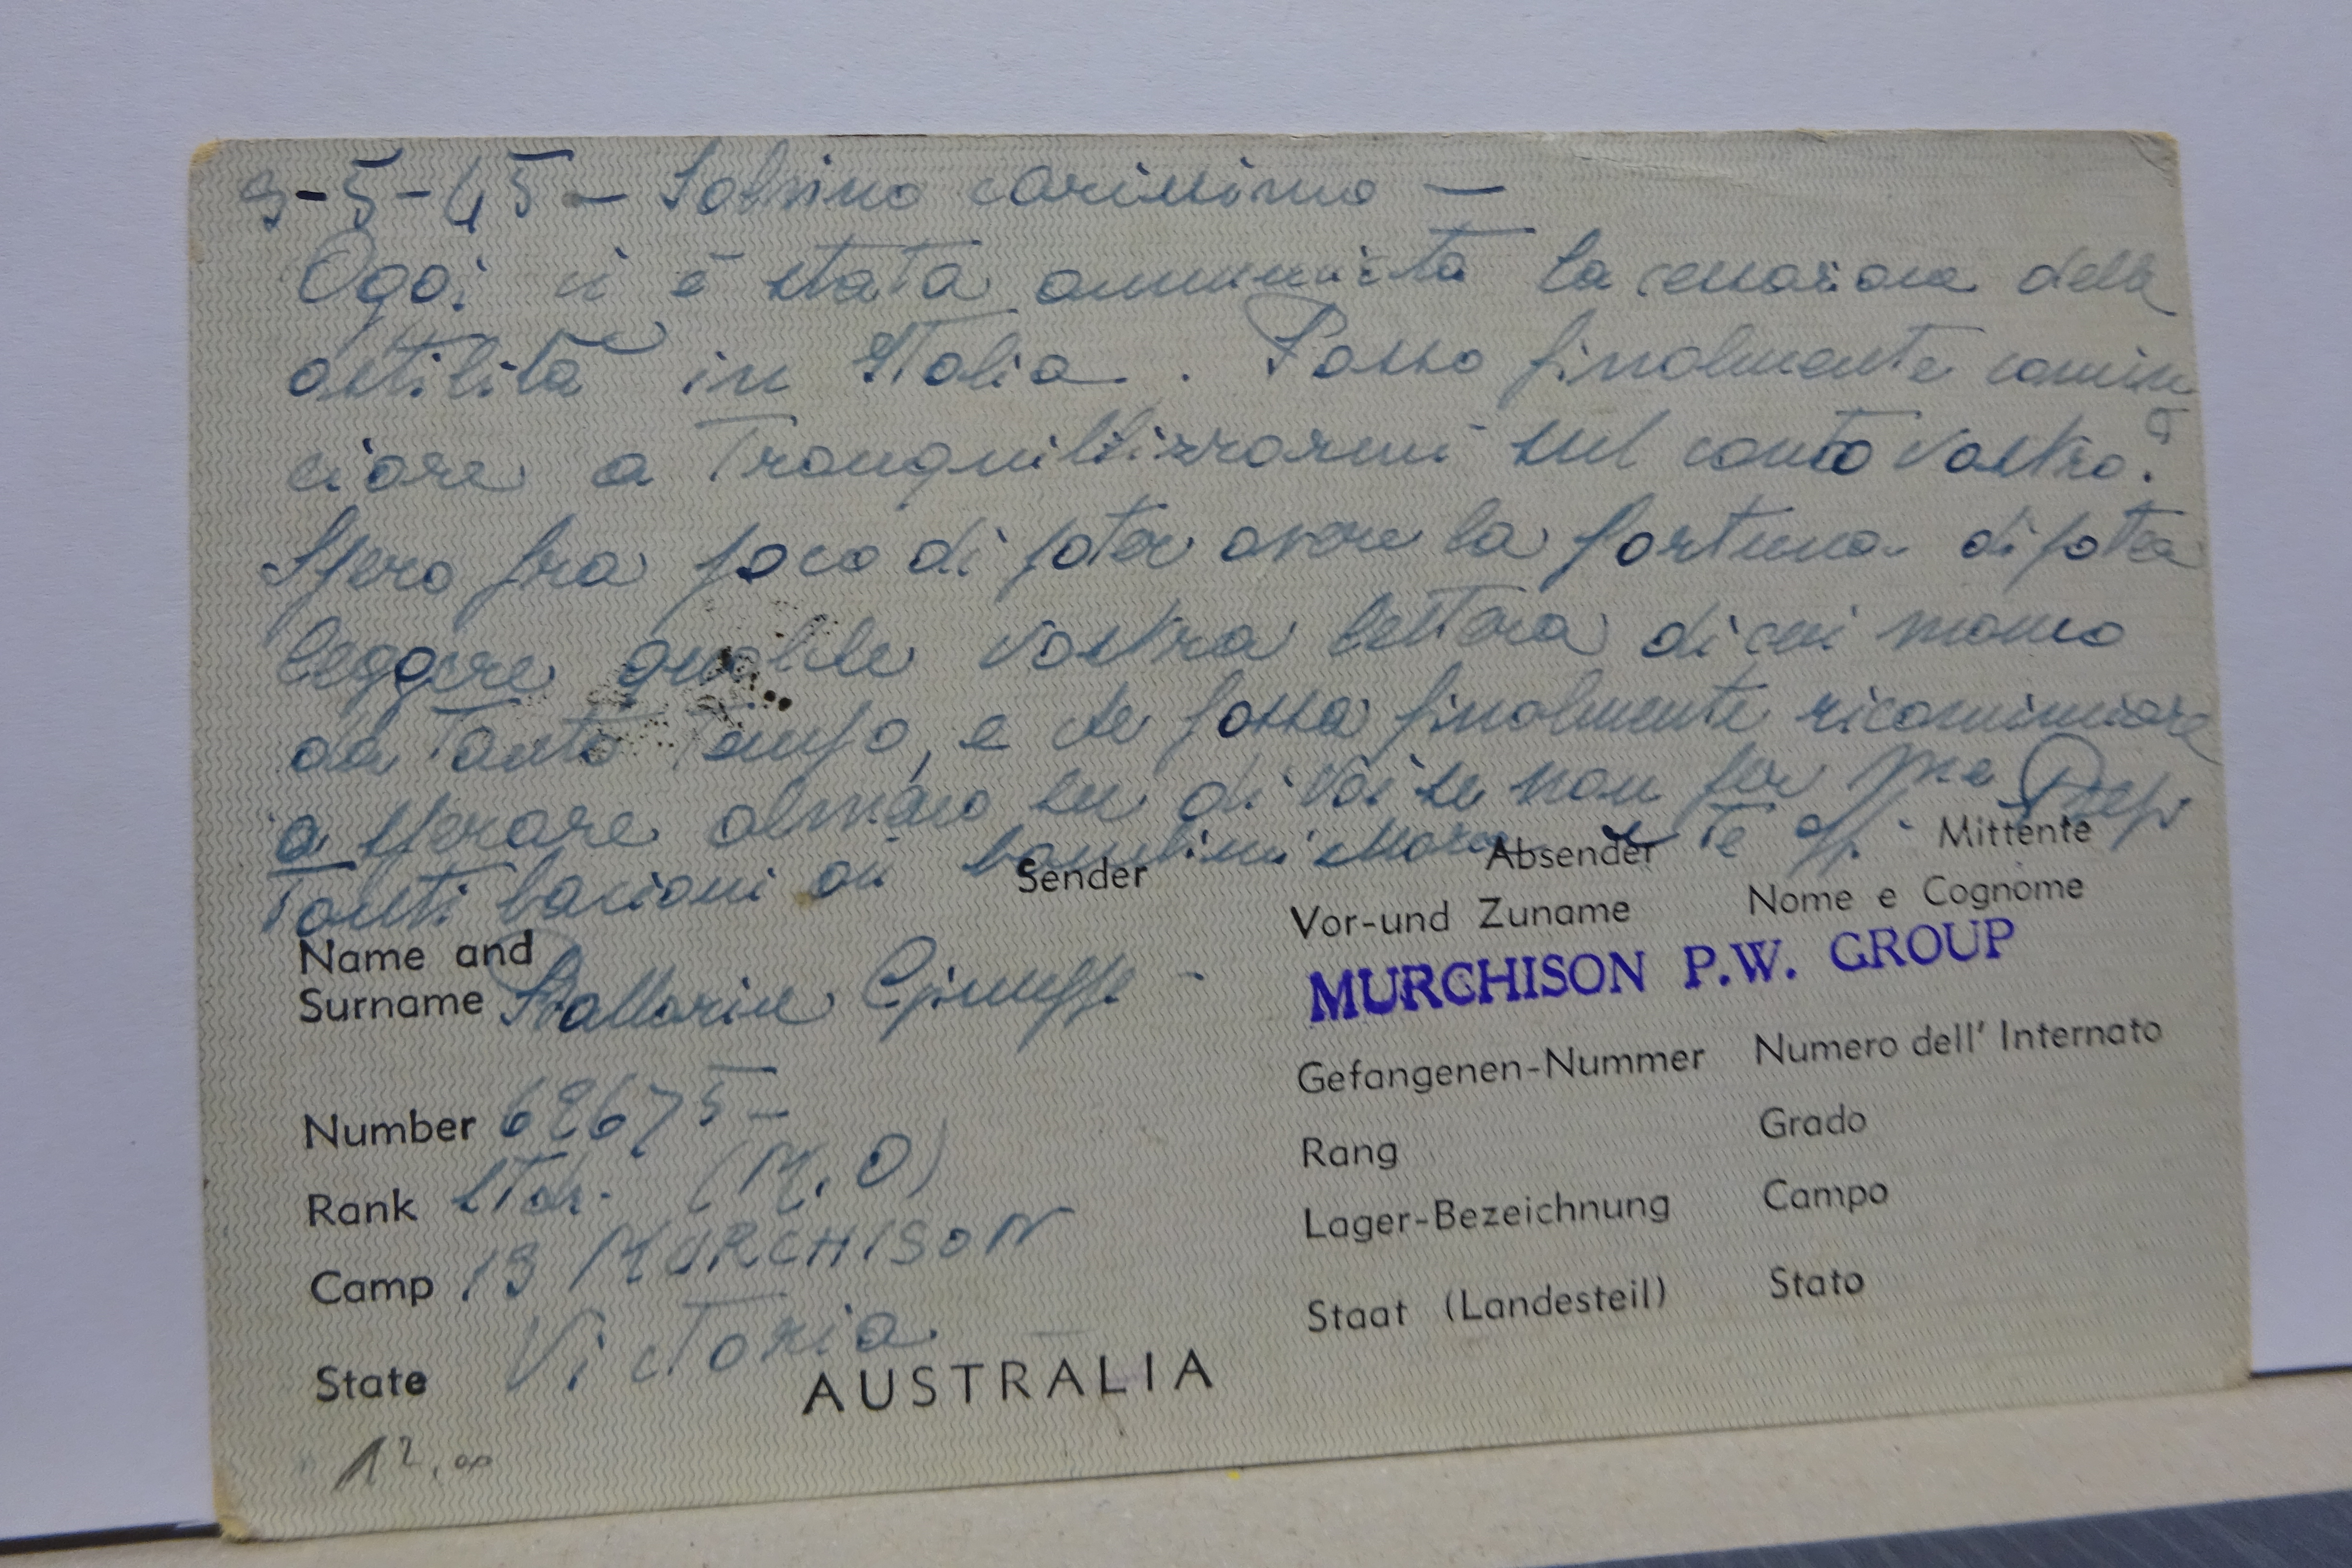 3-5-45 - Salvino carissimo -
Oggi ci è stata annunciata la cessazione delle
ostilità in Italia. Posso finalmente comin
ciare a tranquillizzarmi sul conto vostro?
Spero fra poco di poter avere la fortuna di poter
leggere qualche vostra lettera di cui manco
da tanto tempo, e che possa finalmente ricominciare
a sperare almeno su di voi se non per me
Tanti bacioni ai bambini Mara e te aff. -
Sender Absender Mittente
Name and Vor-und Zuname Nome e Cognome
Surname Giuseppe -
MURCHISON P.W. GROUP
Number 62675- Gefangenen-Nummer Numero dell' Internato
Rank (M.O) Rang Grado
Camp 13 MURCHISON Lager-Bezeichnung Campo
State Victoria Staat (Landesteil) Stato
AUSTRALIA
12,00